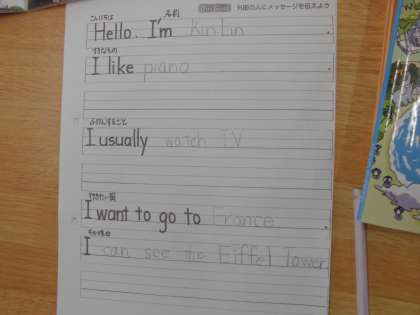 外国の人にメッセージを伝えよう
こんにちは 名前
Hello. I'm Rin Lin .
すきなもの
I like piano .
ふだんすること
I usually watch TV
行きたい国
I want to go to France .
その理由
I can see the Eiffel Tower